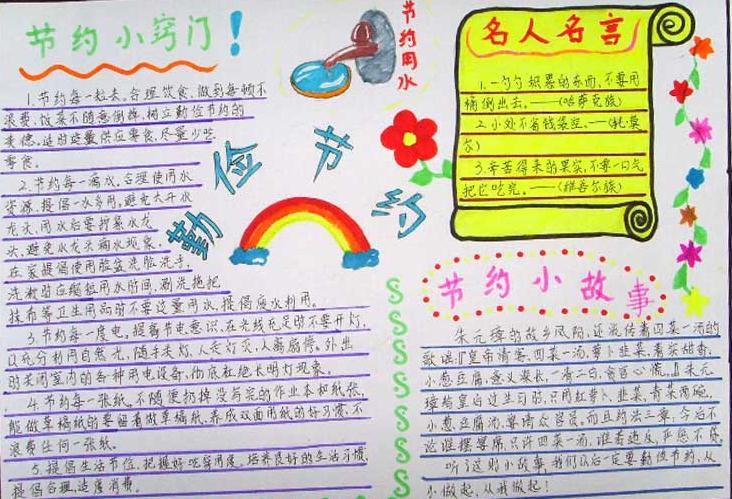 节约小窍门！
1.节约每一粒米。合理饮食，做到每顿不
浪费，饭菜不随意倒掉，树立勤俭节约的
美德。适时适量供应零食，尽量少吃
零食。
2.节约每一滴水。合理使用水
资源，提倡一水多用，避免大开水
龙头，用水后要拧紧水龙
头，避免水龙头滴水现象。
在家提倡使用脸盆洗脸洗手，
洗漱时应缩短用水时间，涮洗拖把，
抹布等卫生用品时不要过量用水，提倡废水利用。
3.节约每一度电。提高节电意识，在光线充足时不要开灯，
以充分利用自然光，随手关灯，人走灯灭，人离扇停。外出
时关闭室内的各种用电设备，彻底杜绝长明灯现象。
4.节约每一张纸。不随便扔掉没写完的作业本和纸张，
能做草稿纸的要留着做草稿纸，养成双面用纸的好习惯，不
浪费任何一张纸。
5.提倡生活节俭，把握好吃穿用度，培养良好的生活习惯，
提倡合理、适度消费。
节约用水
勤俭节约
名人名言
1.一勺勺积累的东西，不要用
桶倒出去。——(哈萨克族)
2.小处不省钱袋空。——(托·莫
尔)
3.辛苦得来的果实，不要一口气
把它吃完。——(维吾尔族)
节约小故事
朱元璋的故乡凤阳，还流传着四菜一汤的
歌谣：『皇帝请客，四菜一汤，萝卜韭菜，着实甜香；
小葱豆腐，意义深长，一清二白，贪官心慌。』朱元
璋给皇后过生日时，只用红萝卜、韭菜，青菜两碗，
小葱豆腐汤，宴请众官员。而且约法三章：今后不
论谁摆宴席，只许四菜一汤，谁若违反，严惩不贷。
听了这则小故事，我们以后一定要勤俭节约，从
小做起，从我做起！